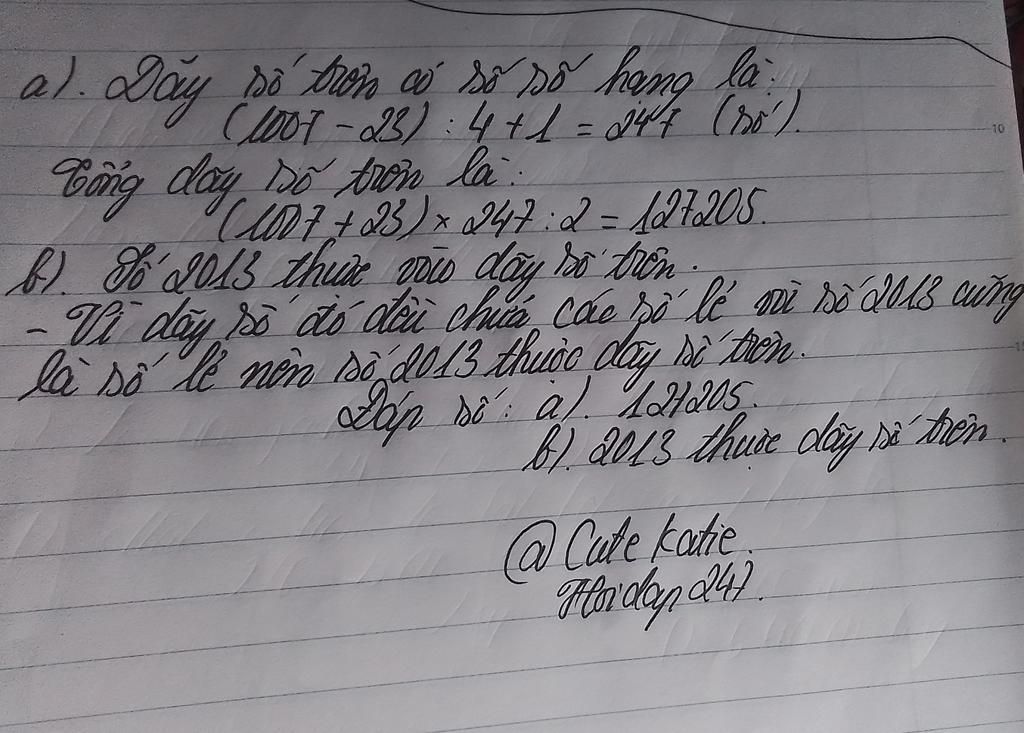 a). Dãy số trên có số số hạng là:
(1007 - 23) : 4 + 1 = 247 (số).
Tổng dãy số trên là:
(1007 + 23) × 247 : 2 = 127205.
b). Số 2013 thuộc vào dãy số trên.
- Vì dãy số đó đều chứa các số lẻ mà số 2013 cũng
là số lẻ nên số 2013 thuộc dãy số trên.
Đáp số: a). 127205.
b). 2013 thuộc dãy số trên.
@Cute Katie.
Hoidap247.
10